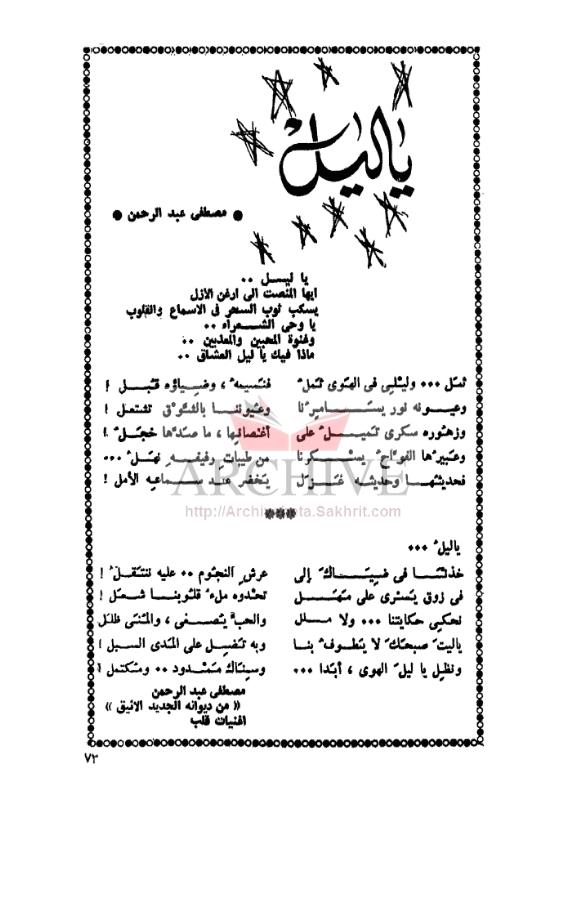 ياليل
● مصطفى عبد الرحمن ●
يا ليـــل ..
ايها المنصت الى ارغن الأزل
يسكب ثوب السحر فى الاسماع والقلوب
يا وحى الشـــعراء ..
وغنوة المحبين والمعذبين ..
ماذا فيك يا ليل العشاق ..
ثمل ... وليلى فى الهوى ثمل فنسيمه ، وضياؤه قبل !
وعيونه نور يســامرنا وعيوننا بالشوق تشتعل !
وزهوره سكرى تميــل على أغصانها ، ما صدها خجل !
وعبيرها الفواح يســكرنا من طيبات رفيفه نهل ...
فحديثها وحديثه غــزل يخضر عند ســماعه الأمل !
ARCHIVE
http://Archivebeta.Sakhrit.com
***
ياليل ...
خذنــا فى ضيــاك إلى عرش النجوم .. عليه ننتقل !
فى زورق يسرى على مهــل تحدوه ملء قلوبنا شعل !
نحكى حكايتنا ... ولا ملل والحب يصغى ، والمنى ظلل
ياليت صبحك لا يطوف بنا وبه تضل على المدى السبل !
ونظل يا ليل الهوى ، أبدا ... وسناك ممــدود .. ومكتمل !
مصطفى عبد الرحمن
« من ديوانه الجديد الانيق »
اغنيات قلب
٧٣